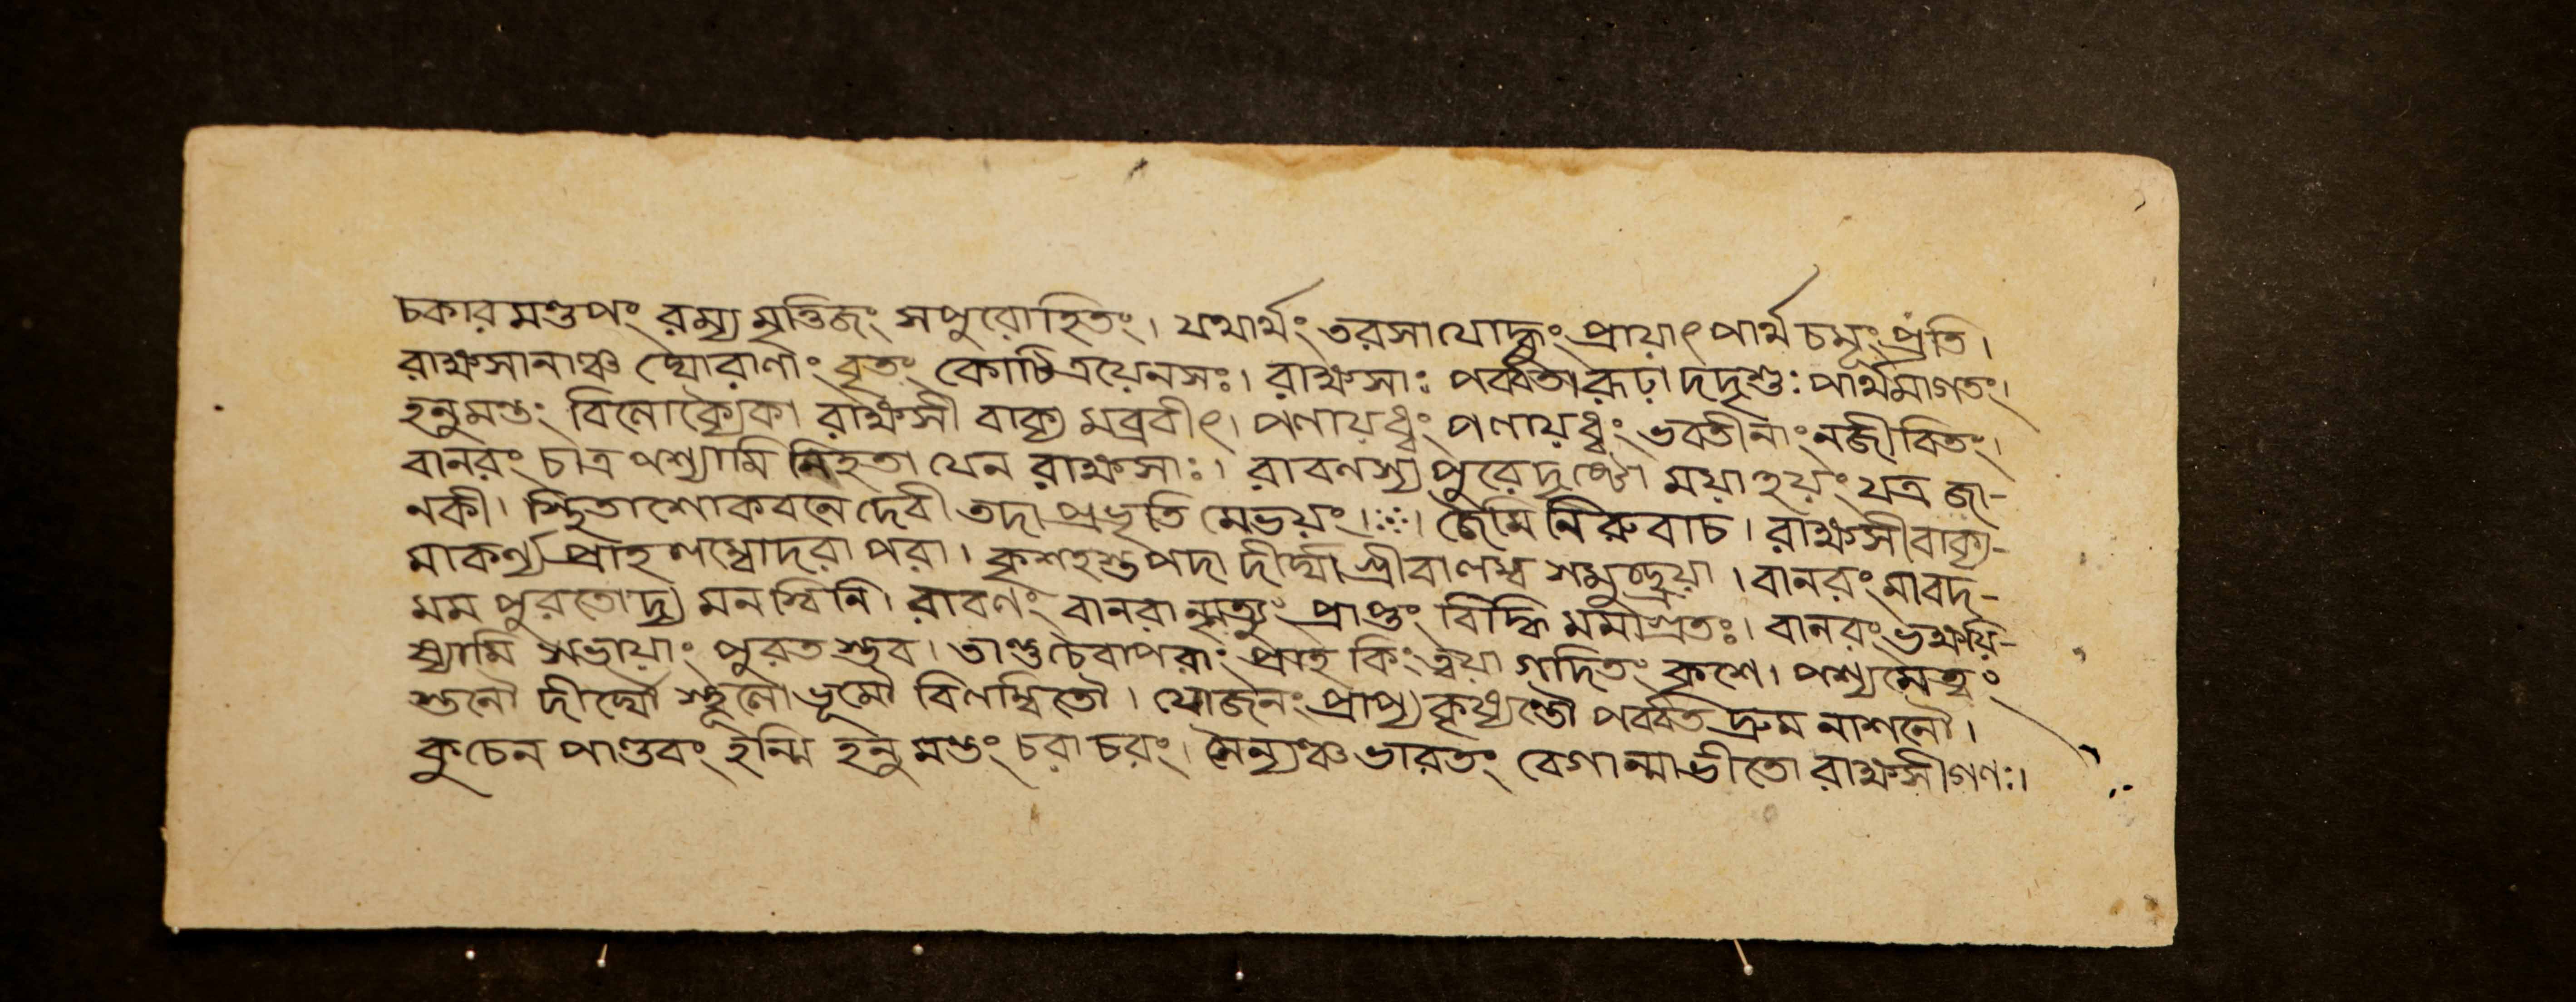 চকার মণ্ডপং রম্য মৃত্বিজং সপুরোহিতং। যথার্থং তরসাযোদ্ধুং প্রায়াৎ পার্থ চমূং প্রতি।
রাক্ষসানাঞ্চ ঘোরাণাং বৃতং কোটিত্রয়েনসঃ। রাক্ষসাঃ পর্ব্বতারূঢ়া দদৃশুঃ পার্থমাগতং।
হনুমন্তং বিলোক্যৈকা রাক্ষসী বাক্য মব্রবীৎ। পলায়ধ্বং পলায়ধ্বং ভবতীনাং নজীবিতং।
বানরং চাত্র পশ্যামি নিহতা যেন রাক্ষসাঃ। রাবণস্য পুরেদৃষ্টো ময়া হয়ং যত্র জা-
নকী। স্থিতাশোকবনে দেবী তদা প্রভৃতি মেভয়ং।ঃ·ঃ। জৈমিনিরুবাচ। রাক্ষসীবাক্য-
মাকর্ণ্য প্রাহ লম্বোদরা পরা। কৃশহস্তপদা দীর্ঘা গ্রীবালম্ব সমুচ্ছ্রয়া। বানরং মাবদ-
মম পুরতোদ্য মনস্বিনি। রাবণং বানরান্মৃত্যুং প্রাপ্তং বিদ্ধি মমাগ্রতঃ। বানরং ভক্ষয়ি-
ষ্যামি সভায়াং পুরত স্তব। তাণ্ডচৈবাপরাং প্রাহ কিং ত্বয়া গদিতং কৃশে। পশ্যমেত্বং
স্তনৌ দীর্ঘৌ স্থূলৌ ভূমৌ বিলম্বিতৌ। যোজনং প্রাপ্য কৃষ্যন্তৌ পর্ব্বত দ্রুম নাশনৌ।
কুচেন পাণ্ডবং হন্মি হনুমন্তং চরাচরং। সৈন্যঞ্চ ভারতং বেগান্মাভীতো রাক্ষসীগণঃ।